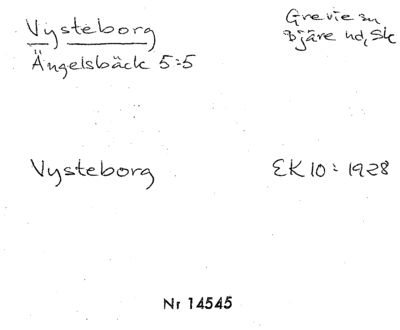 Vysteborg
Ängelsbäck 5:5
Grevie sn
Bjäre hd, Sk
Vysteborg
EK 10: 1928
Nr 14545